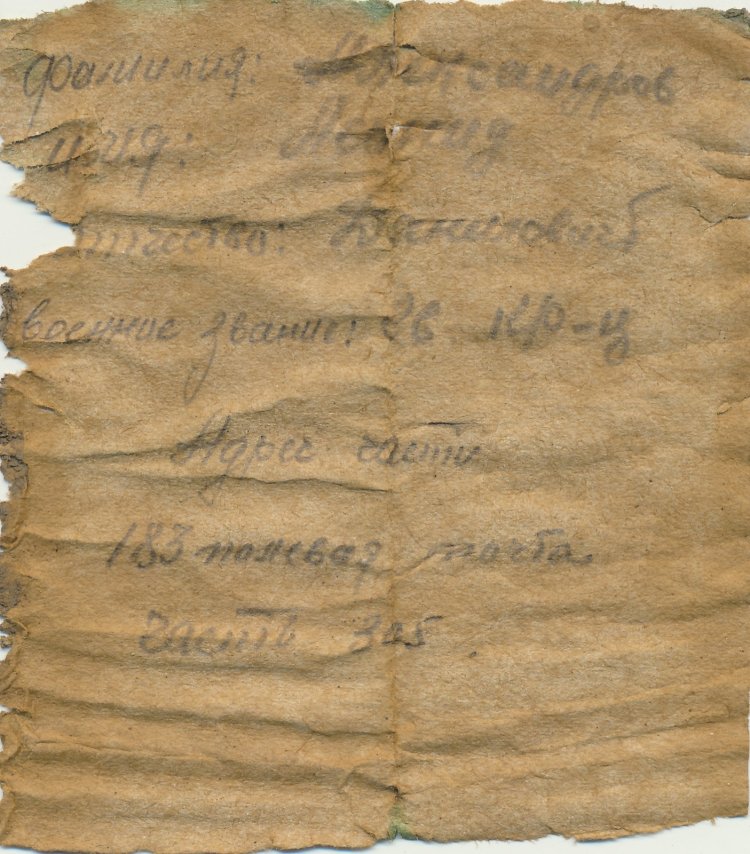 фамилия: Александров
имя: Леонид
отчество:
военние звание: гв кр-ц
Адрес части
183 полевая почта
часть 305